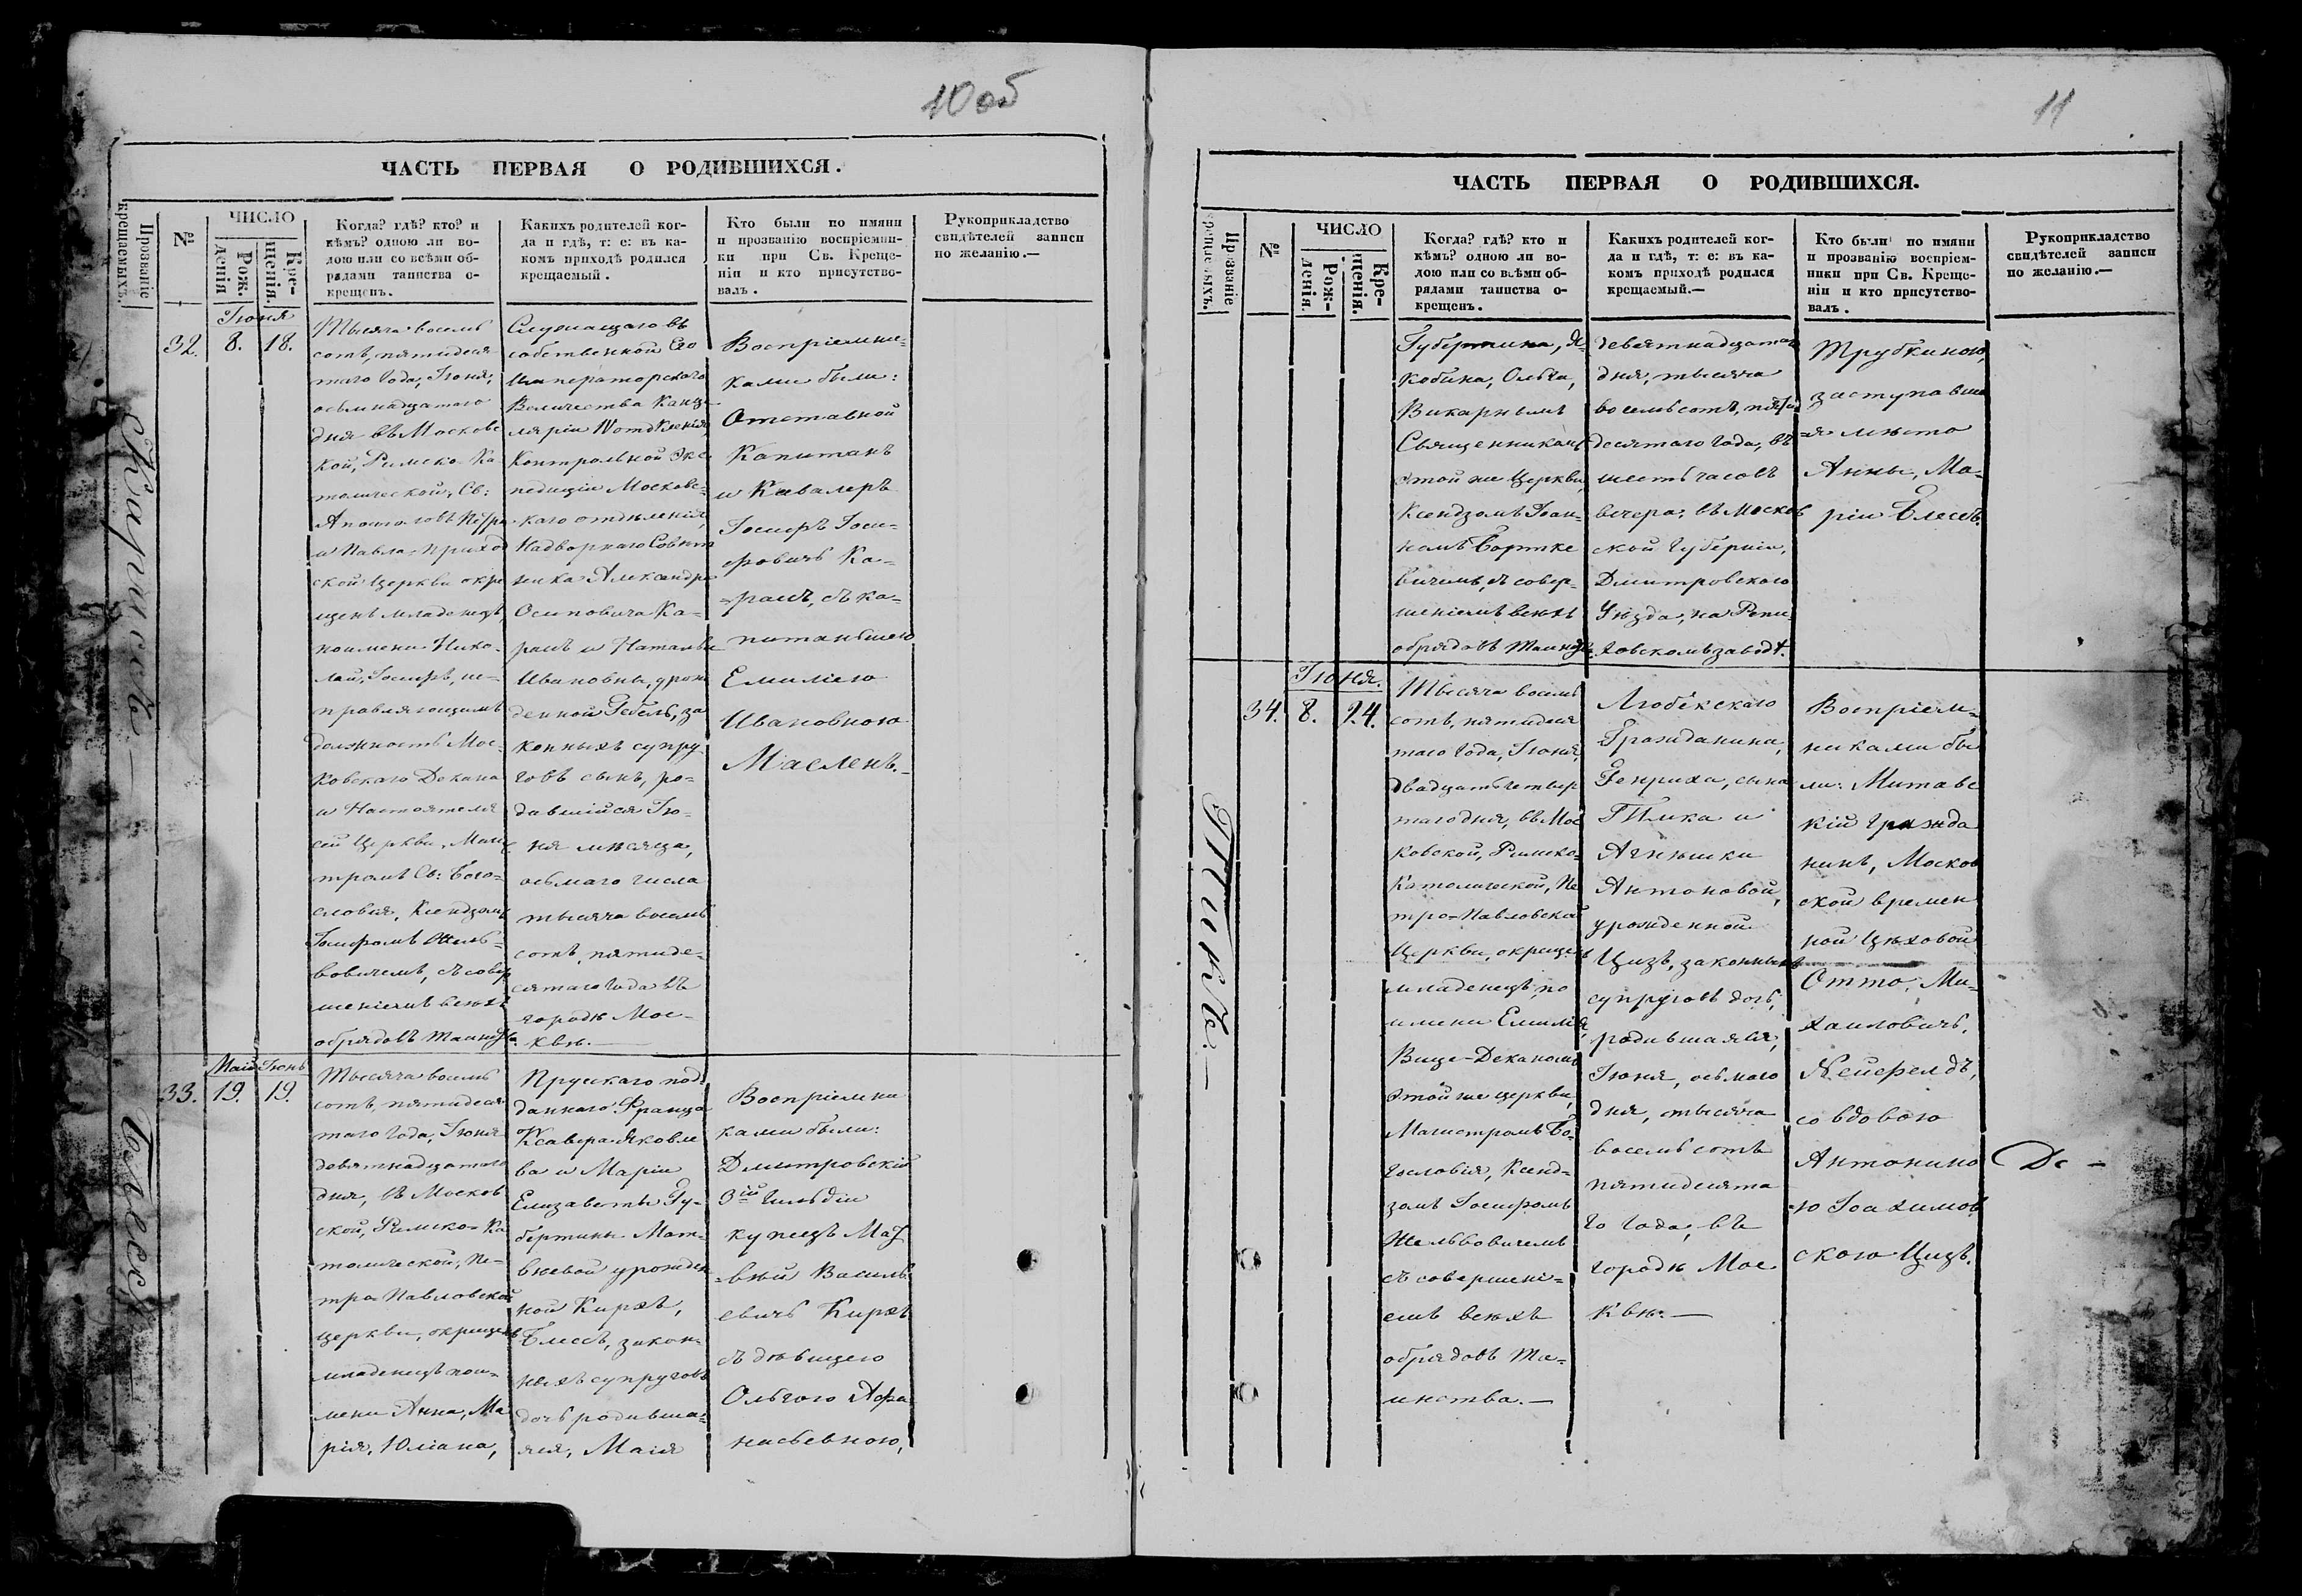 10 об
ЧАСТЬ ПЕРВАЯ О РОДИВШИХСЯ.
Прозваніе крещаемыхъ.
№
ЧИСЛО
Рож-
денія
Кре-
щенія.
Когда? гдѣ? кто? и
кѣмъ? одною ли во-
дою или со всѣми об-
рядами таинства о-
крещенъ.
Какихъ родителей ког-
да и гдѣ, т: е: въ ка-
комъ приходѣ родился
крещаемый.
Кто были по имяни
и прозванію воспріемни-
ки при Св. Креще-
ніи и кто присутство-
валъ.
Рукоприкладство
свидѣтелей записи
по желанію.—
Іюня
32. 8. 18.
Тысяча восемь
сотъ, пятидеся
таго Года, Іюня,
осьмнадцатаго
дня въ Московс
кой, Римско-Ка
толической, Св:
Апостоловъ Петра
и Павла приход
ской Церкви окре
щенъ младенецъ,
поимени Нико-
лай, Іосифъ, ис-
правляющимъ
должность Мос-
ковскаго Декана
и Настоятеля
сей Церкви, Магис
тромъ Св: Бого-
словія, Ксендзомъ
Іосифомъ Шель-
вовичемъ, съ совер
шеніемъ всѣхъ
обрядовъ таинства.
Служащаго въ
собственной Его
Императорскаго
Величества Канце
ляріи IV отдѣленія,
Контрольной Экс
педиціи Московс-
каго отдѣленія,
Надворнаго Совѣт
ника Александра
Осиповича Ка-
расъ и Натальи
Ивановны, урож
денной Гебель, за
конныхъ супру
говъ сынъ, ро-
дившійся Ію-
ня мѣсяца,
осьмаго числа
тысяча восемь
сотъ, пятиде-
сятаго Года въ
городѣ Мос-
квѣ.—
Воспріемни-
ками были:
Отставной
Капитанъ
и Кавалеръ
Іосифъ Іоси-
фовичъ Ка-
расъ, съ ка-
питаншею
Емиліею
Ивановною
Масленъ.—
Май Іюнь
33. 19. 19.
Тысяча восемь
сотъ, пятидеся
таго Года, Іюня
девятнадцатаго
дня, въ Москов
ской, Римско-Ка
толической, Пе-
тро-Павловской
церкви, окрещенъ
младенецъ пои-
мени Анна, Ма
рія, Юліана,
Прускаго под
даннаго Франца
Ксавера Яковле
ва и Маріи
Елизаветы Гу-
бертины Мат-
вѣевой урожден
ной Кирхъ,
Блессъ, закон-
ныхъ супруговъ
дочь родивша-
яся, Маія
Воспріемни
ками были:
Дмитровскій
3ій Гильдіи
купецъ Мат
вѣй Василь
евичъ Кирхъ
съ дѣвицею
Ольгою Афа
насьевною,
11
ЧАСТЬ ПЕРВАЯ О РОДИВШИХСЯ.
Прозваніе крещаемыхъ.
№
ЧИСЛО
Рож-
денія.
Кре-
щенія.
Когда? гдѣ? кто и
кѣмъ? одною ли во-
дою или со всѣми об-
рядами таинства о-
крещенъ.
Какихъ родителей ког-
да и гдѣ, т: е: въ ка-
комъ приходѣ родился
крещаемый.—
Кто были по имяни
и прозванію воспріем-
ники при Св. Креще-
ніи и кто присутство-
валъ.
Рукоприкладство
свидѣтелей записи
по желанію.—
Губертина, Я-
кобина, Ольга,
Викарнымъ
Священникомъ
этой же Церкви,
Ксендзомъ Іоан-
номъ Бортке
вичемъ, съ совер-
шеніемъ всѣхъ
обрядовъ таинства.
девятнадцатаго
дня, тысяча
восемьсотъ, пять
десятаго Года, въ
шесть часовъ
вечера, въ Москов
ской Губерніи,
Дмитровскаго
Уѣзда, на
заводѣ.
Трубкиною,
заступавше
я мѣсто
Анны, Ма-
ріи Блессъ.
Іюня.
34. 8. 24.
Тысяча восемь
сотъ, пятидеся
таго Года, Іюня,
двадцать четвер
таго дня, въ Мос
ковской, Римско-
Католической, Пе
тро-Павловской
Церкви, окрещенъ
младенецъ, по
имени Емилія,
Вице-Деканомъ
этой же церкви,
Магистромъ Бо-
гословія, Ксенд-
зомъ Іосифомъ
Шельвовичемъ
съ совершені-
емъ всѣхъ
обрядовъ Та-
инства.—
Любекскаго
Гражданина,
Генриха, сына
Тика и
Агнешки
Антоновой,
урожденной
Цизъ, законныхъ
супруговъ дочь,
родившаяся,
Іюня, осьмаго
дня, тысяча
восемь сотъ
пятидесята
го Года, въ
городѣ Мос-
квѣ.—
Воспріем-
никами бы
ли: Митавс
кій гражда
нинъ, Москов
ской времен
ной Цеховой
Отто, Ми-
хаиловичъ,
Нейфелдъ,
со вдовою
Антонино
ю Іоахимов
скою Цизъ.